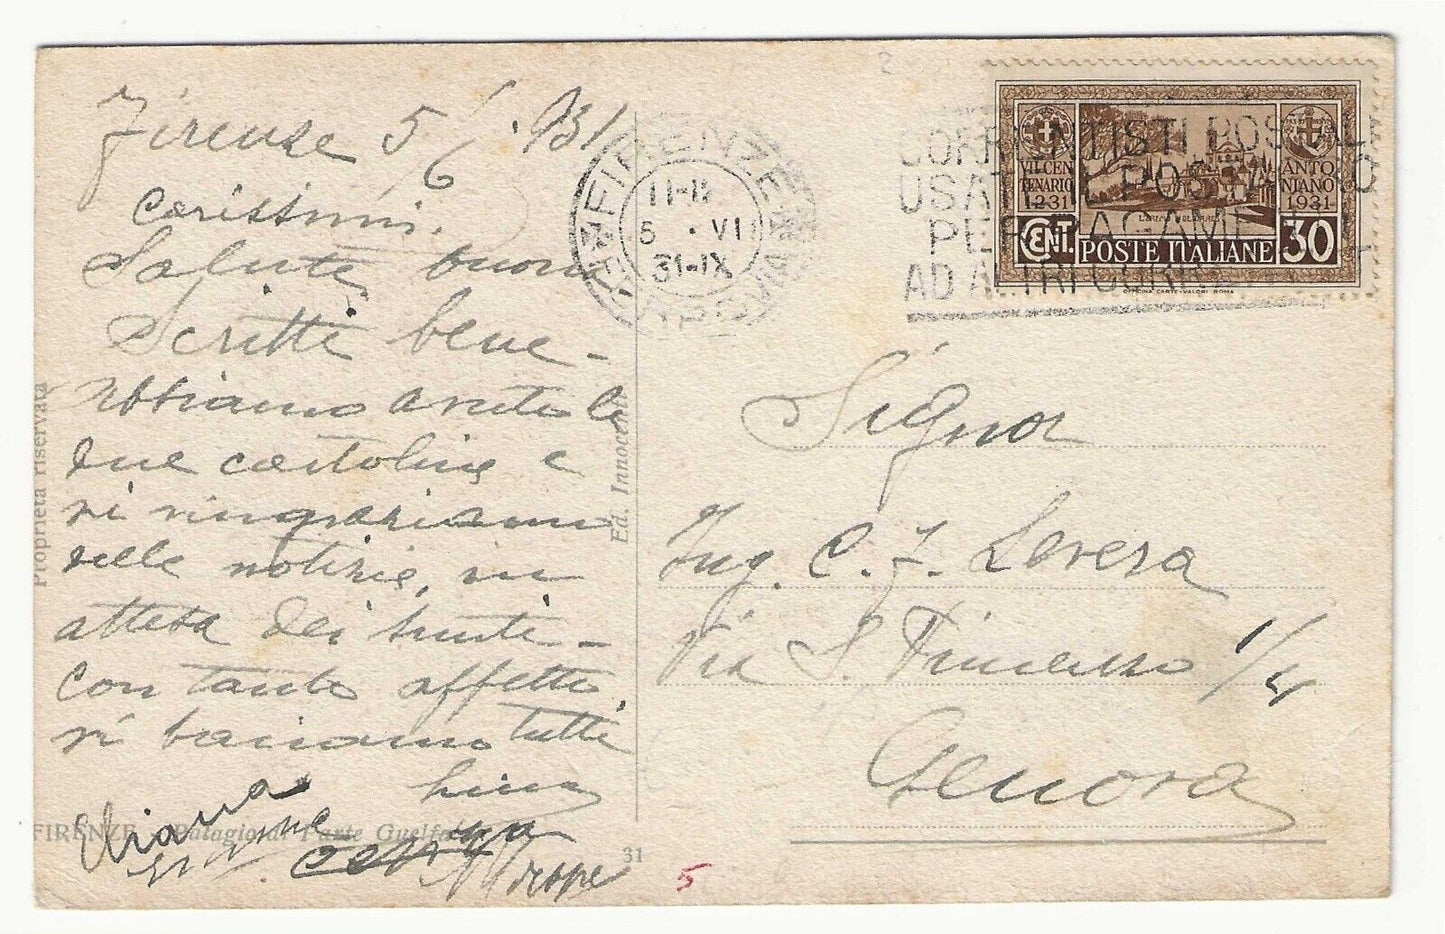 Firenze 5/6 . 931
Carissimi.
Salute, buon
Scritti bene -
Abbiamo avuto le
due cartoline e
vi ringraziamo
delle notizie, in
attesa dei
con tanto affetto
vi baciamo tutti
Lina
Eliana
FIRENZE - Palagio di Parte Guelfa
31
Proprietà riservata
Ed. Innocenti
FIRENZE
11-
5 . VI
31-IX
CORRENTISTI POSTALI
USATE IL POSTAGIRO
PER PAGAMENTI
AD ALTRI CORR
VII CEN
TENARIO
1231
ANTO
NIANO
1931
CENT. POSTE ITALIANE 30
OFFICINA CARTE-VALORI ROMA
Signor
Ing. C. F. Levera
Via S. Vincenzo 1/4
Genova
5
2